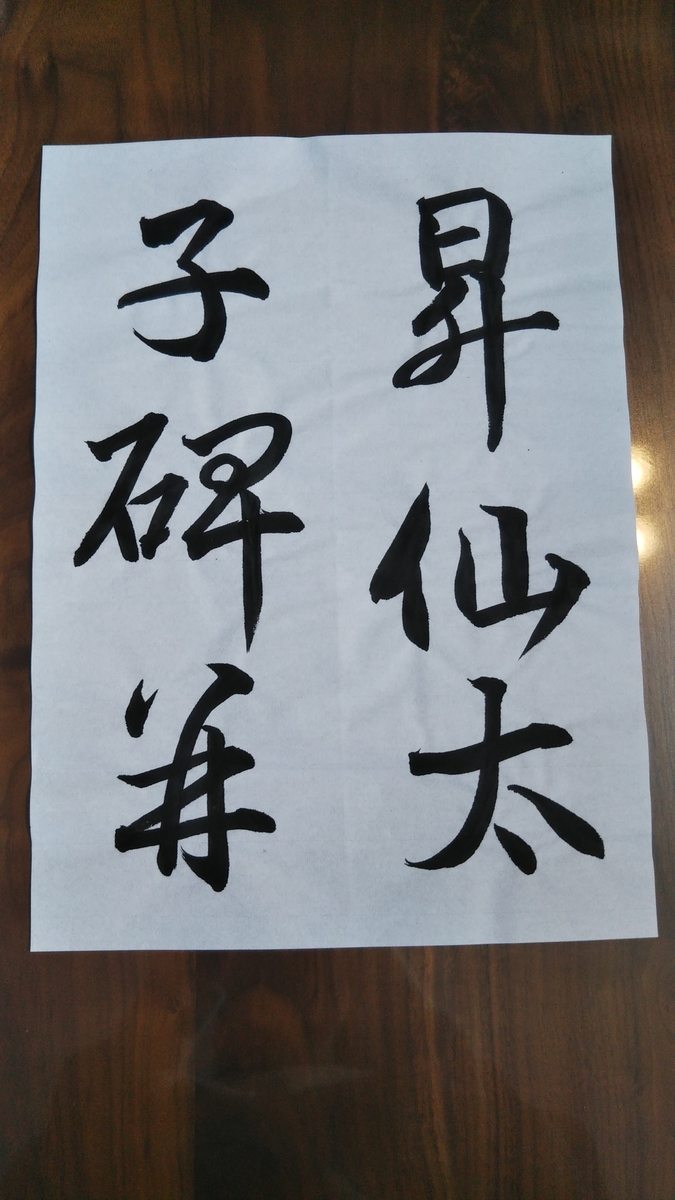 昇仙太
子碑并